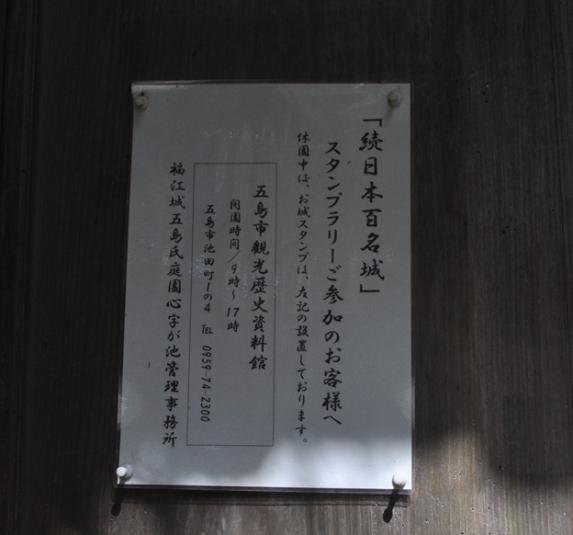 「続日本百名城」
スタンプラリーご参加のお客様へ
休園中は、お城スタンプは、左記の設置しております。
五島市観光歴史資料館
開園時間/9時~17時
五島市池田町1の4 TEL 0959-74-2300
福江城五島氏庭園心字が池管理事務所